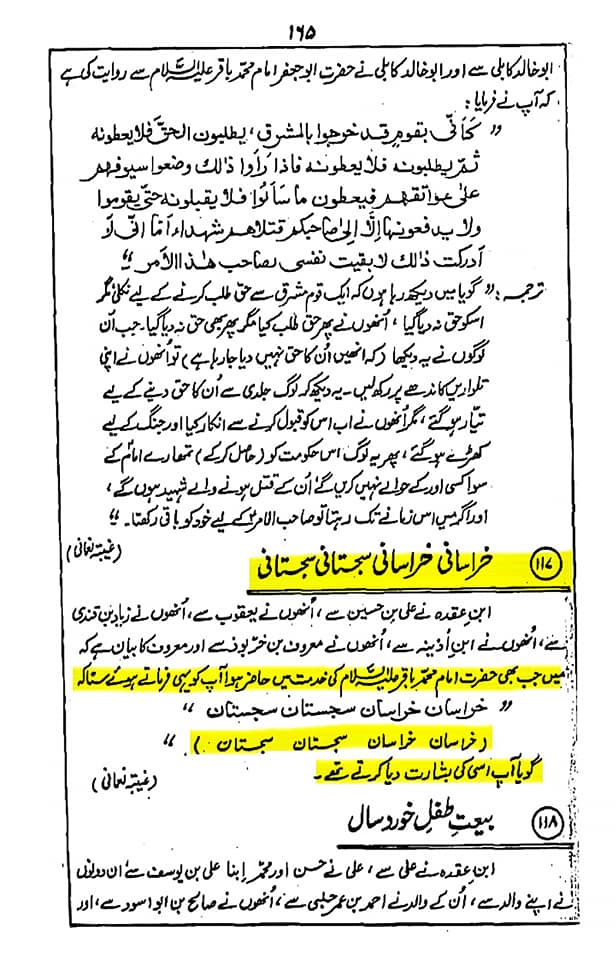 ۱۶۵
ابو خالد کابلی سے اور ابو خالد کابلی نے حضرت ابو جعفر امام محمد باقر علیہ السلام سے روایت کی ہے
کہ آپ نے فرمایا :
” کَاَنّی بقومٍ قد خرجوا بالمشرق ، یطلبون الحقّ فلا یعطونہ
ثمّ یطلبونہ فلا یعطونہ فاذا رأوا ذالک وضعوا سیوفھم
علیٰ عواتقھم فیعطون ما سأنوا فلا یقبلونہ حتّی یقوموا
ولا یدفعونھا اِلّا اِلیٰ صاحبکم قتلاھم شھداء اَمّا اِنّی لا
ادرکت ذالک لابقیت نفسی لصاحب ھذا الأمر “
ترجمہ : ” گویا میں دیکھ رہا ہوں کہ ایک قوم مشرق سے حق طلب کرنے کے لیے نکلی مگر
اسکو حق نہ دیا گیا ، اُنھوں نے پھر حق طلب کیا مگر پھر بھی حق نہ دیا گیا۔ جب اُن
لوگوں نے یہ دیکھا (کہ انھیں اُن کا حق نہیں دیا جا رہا ہے) تو اُنھوں نے اپنی
تلواریں کاندھے پر رکھ لیں۔ یہ دیکھ کر لوگ جلدی سے اُن کا حق دینے کے لیے
تیار ہو گئے ، مگر اُنھوں نے اب اس کو قبول کرنے سے انکار کیا اور جنگ کے لیے
کھڑے ہو گئے ، پھر یہ لوگ اس حکومت کو (حاصل کرکے) تمھارے امامؑ کے
سوا کسی اور کے حوالے نہیں کریں گے اُن کے قتل ہونے والے شہید ہوں گے ،
اور اگر میں اس زمانے تک رہتا تو صاحب الامرؑ کے لیے خود کو باقی رکھتا۔ “
(غیبۃ نعمانی)
۱۱۷ خراسانی خراسانی سجستانی سجستانی
ابن عقدہ نے علی بن حسین سے ، اُنھوں نے یعقوب سے ، اُنھوں نے زیاد بن قندی
سے ، اُنھوں نے ابن اُذینہ سے ، اُنھوں نے معروف بن خرّبوذ سے اور معروف کا بیان ہے کہ
میں جب بھی حضرت امام محمد باقر علیہ السلام کی خدمت میں حاضر ہوا آپ کو یہی فرماتے ہوئے سنا کہ
” خراسان خراسان سجستان سجستان “
(خراسان خراسان سجستان سجستان) “
گویا آپ اسی کی بشارت دیا کرتے تھے۔
(غیبۃ نعمانی)
۱۱۸ بیعتِ طفلِ خورد سال
ابن عقدہ نے علی سے ، علی نے حسن اور محمد اِبنا علی بن یوسف سے اُن دونوں
نے اپنے والد سے ، اُن کے والد نے احمد بن عمر حلبی سے ، اُنھوں نے صالح بن ابو اسود سے ، اور